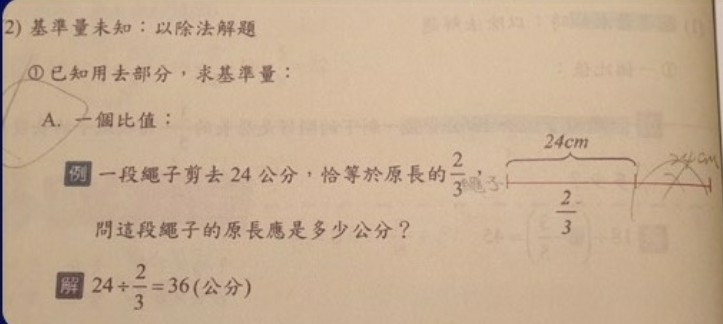 2) 基準量未知：以除法解題
①已知用去部分，求基準量：
A. 一個比值：
例 一段繩子剪去 24 公分，恰等於原長的 2/3，
問這段繩子的原長應是多少公分？
24cm
2/3
24cm
解 24 ÷ 2/3 = 36 (公分)